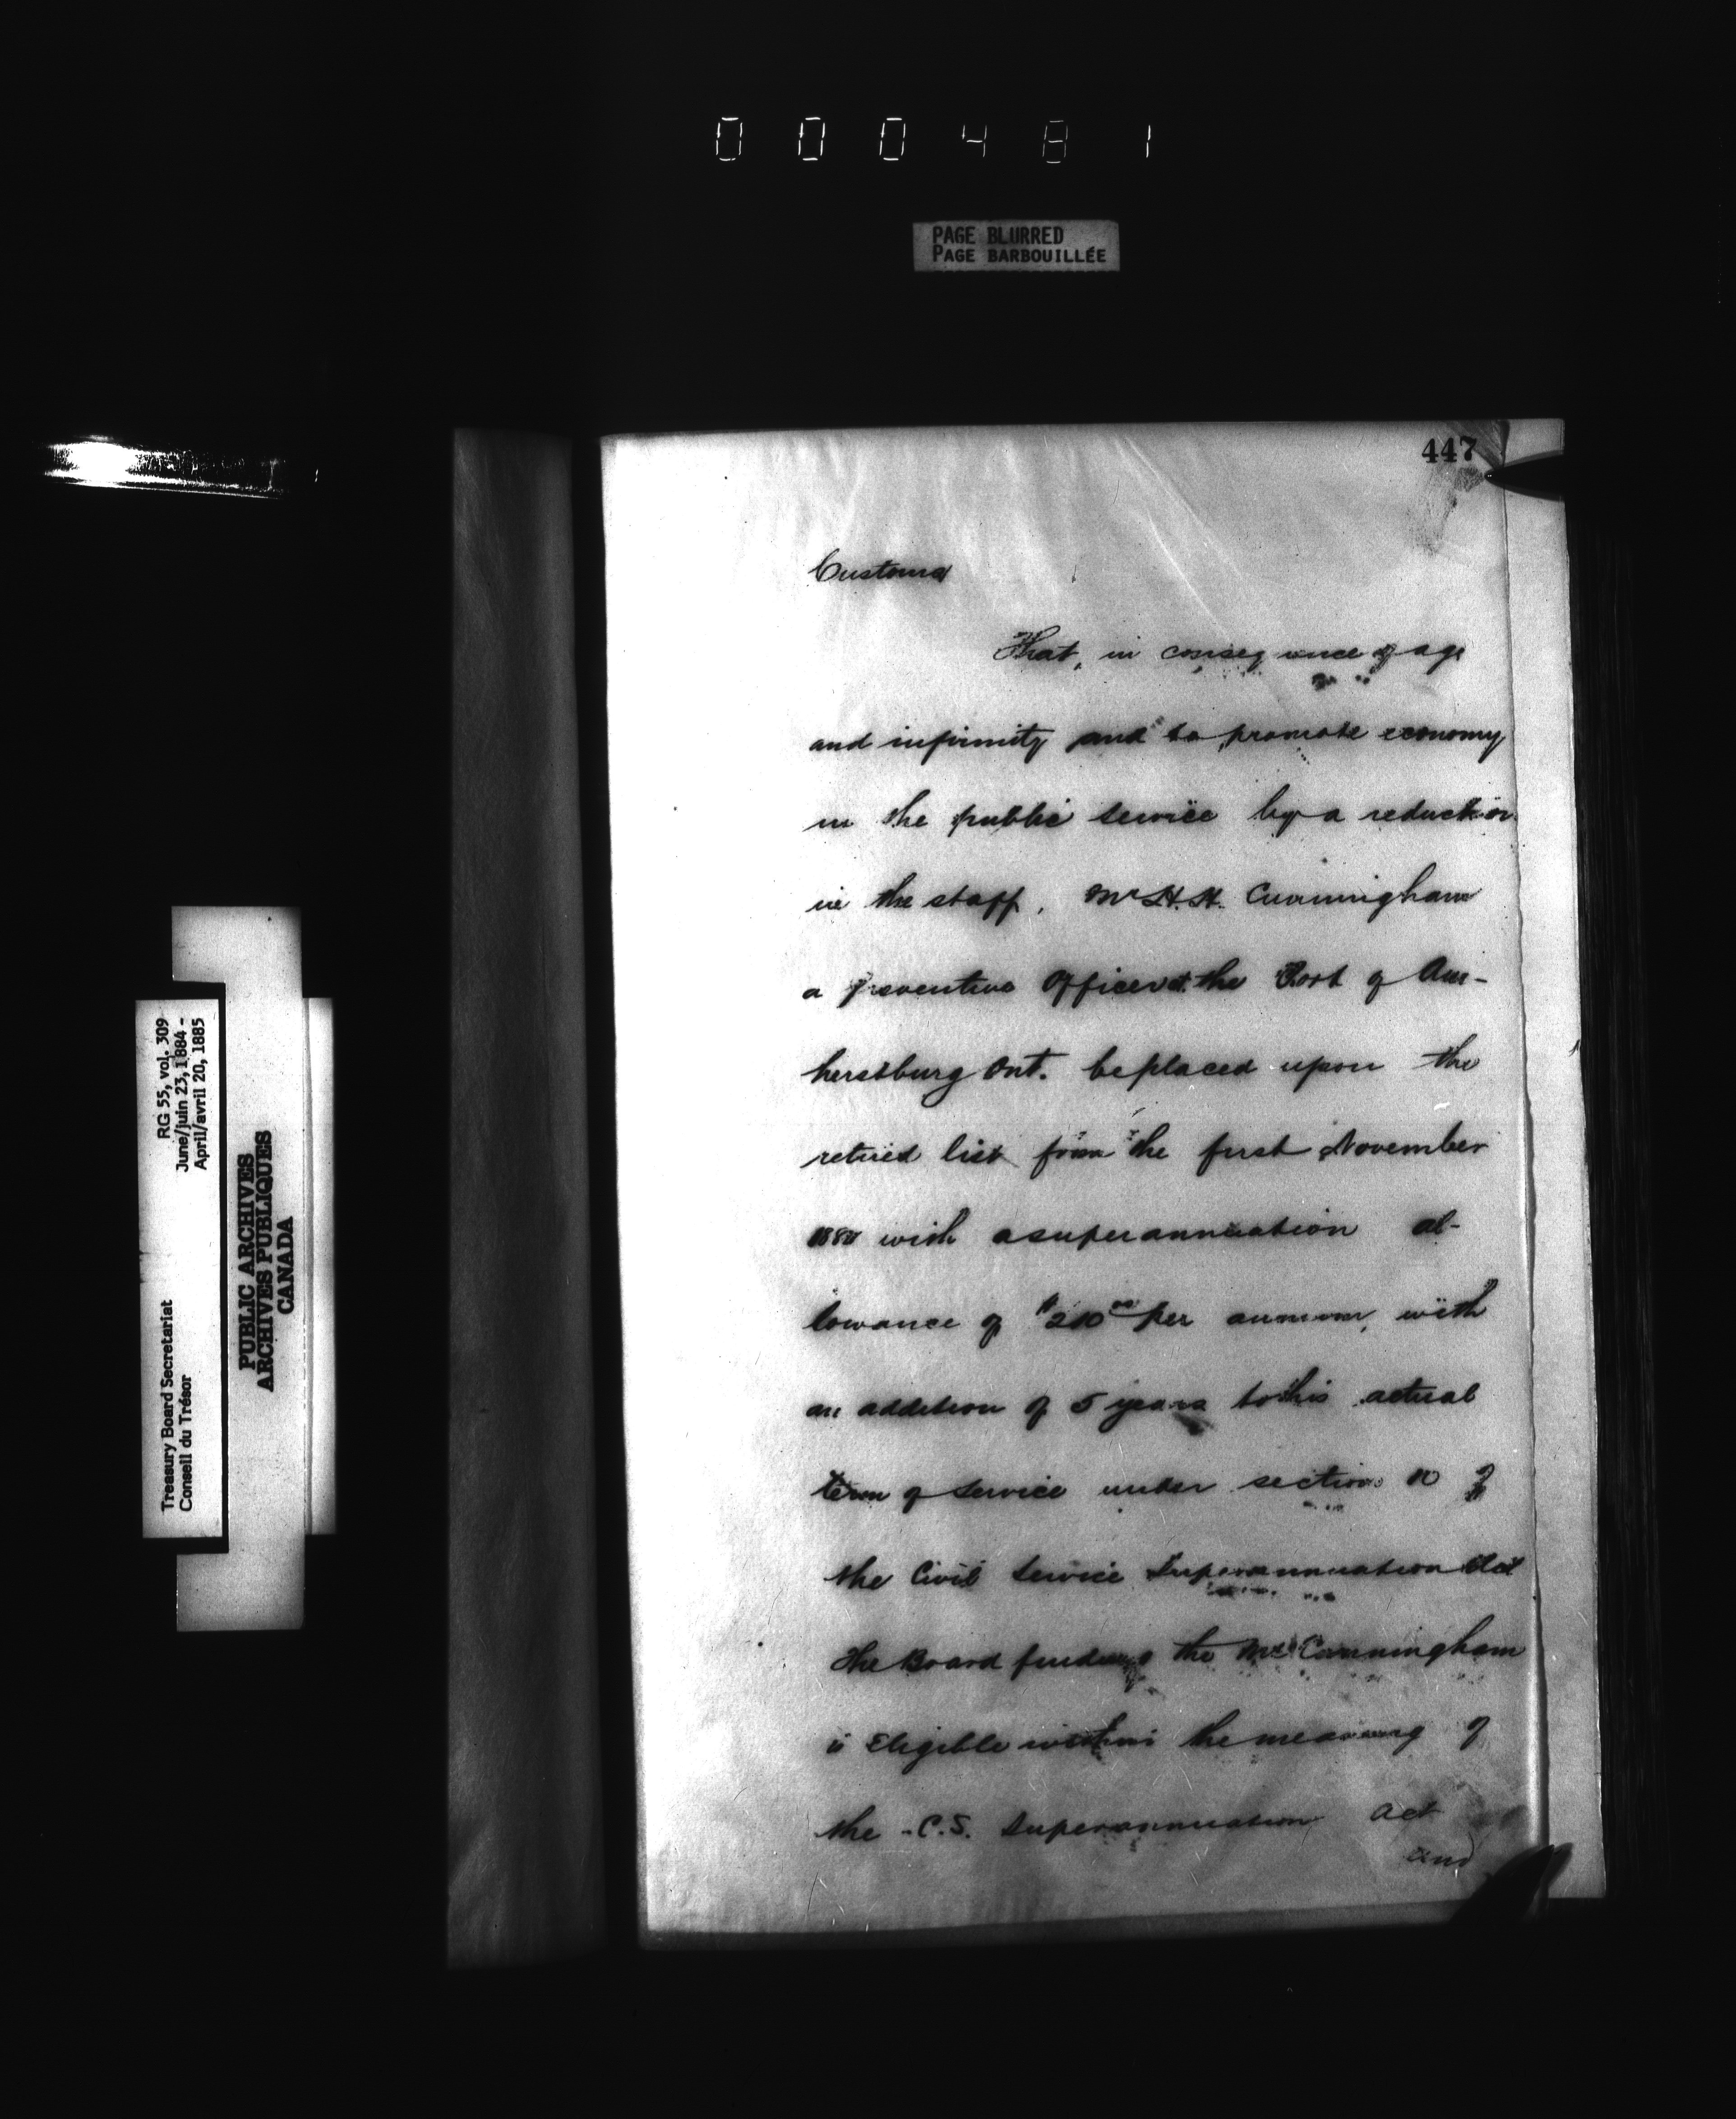 000481
PAGE BLURRED
PAGE BARBOUILLÉE
447
Customs
That, in consequence of age
and infirmity and to promote economy
in the public service by a reduction
in the staff, Mr H.H. Cunningham
a Preventive Officer at the Port of Am-
herstburg Ont. be placed upon the
retired list from the first November
with a superannuation al-
lowance of $210 00 per annum, with
an addition of 5 years to his actual
term of service under section 10 of
the Civil Service Superannuation Act
The Board finding the Mr Cunningham
is Eligible within the meaning of
the C.S. Superannuation Act
and
RG 55, vol. 309
June/juin 23, 1884 -
April/avril 20, 1885
Treasury Board Secretariat
Conseil du Trésor
PUBLIC ARCHIVES
ARCHIVES PUBLIQUES
CANADA